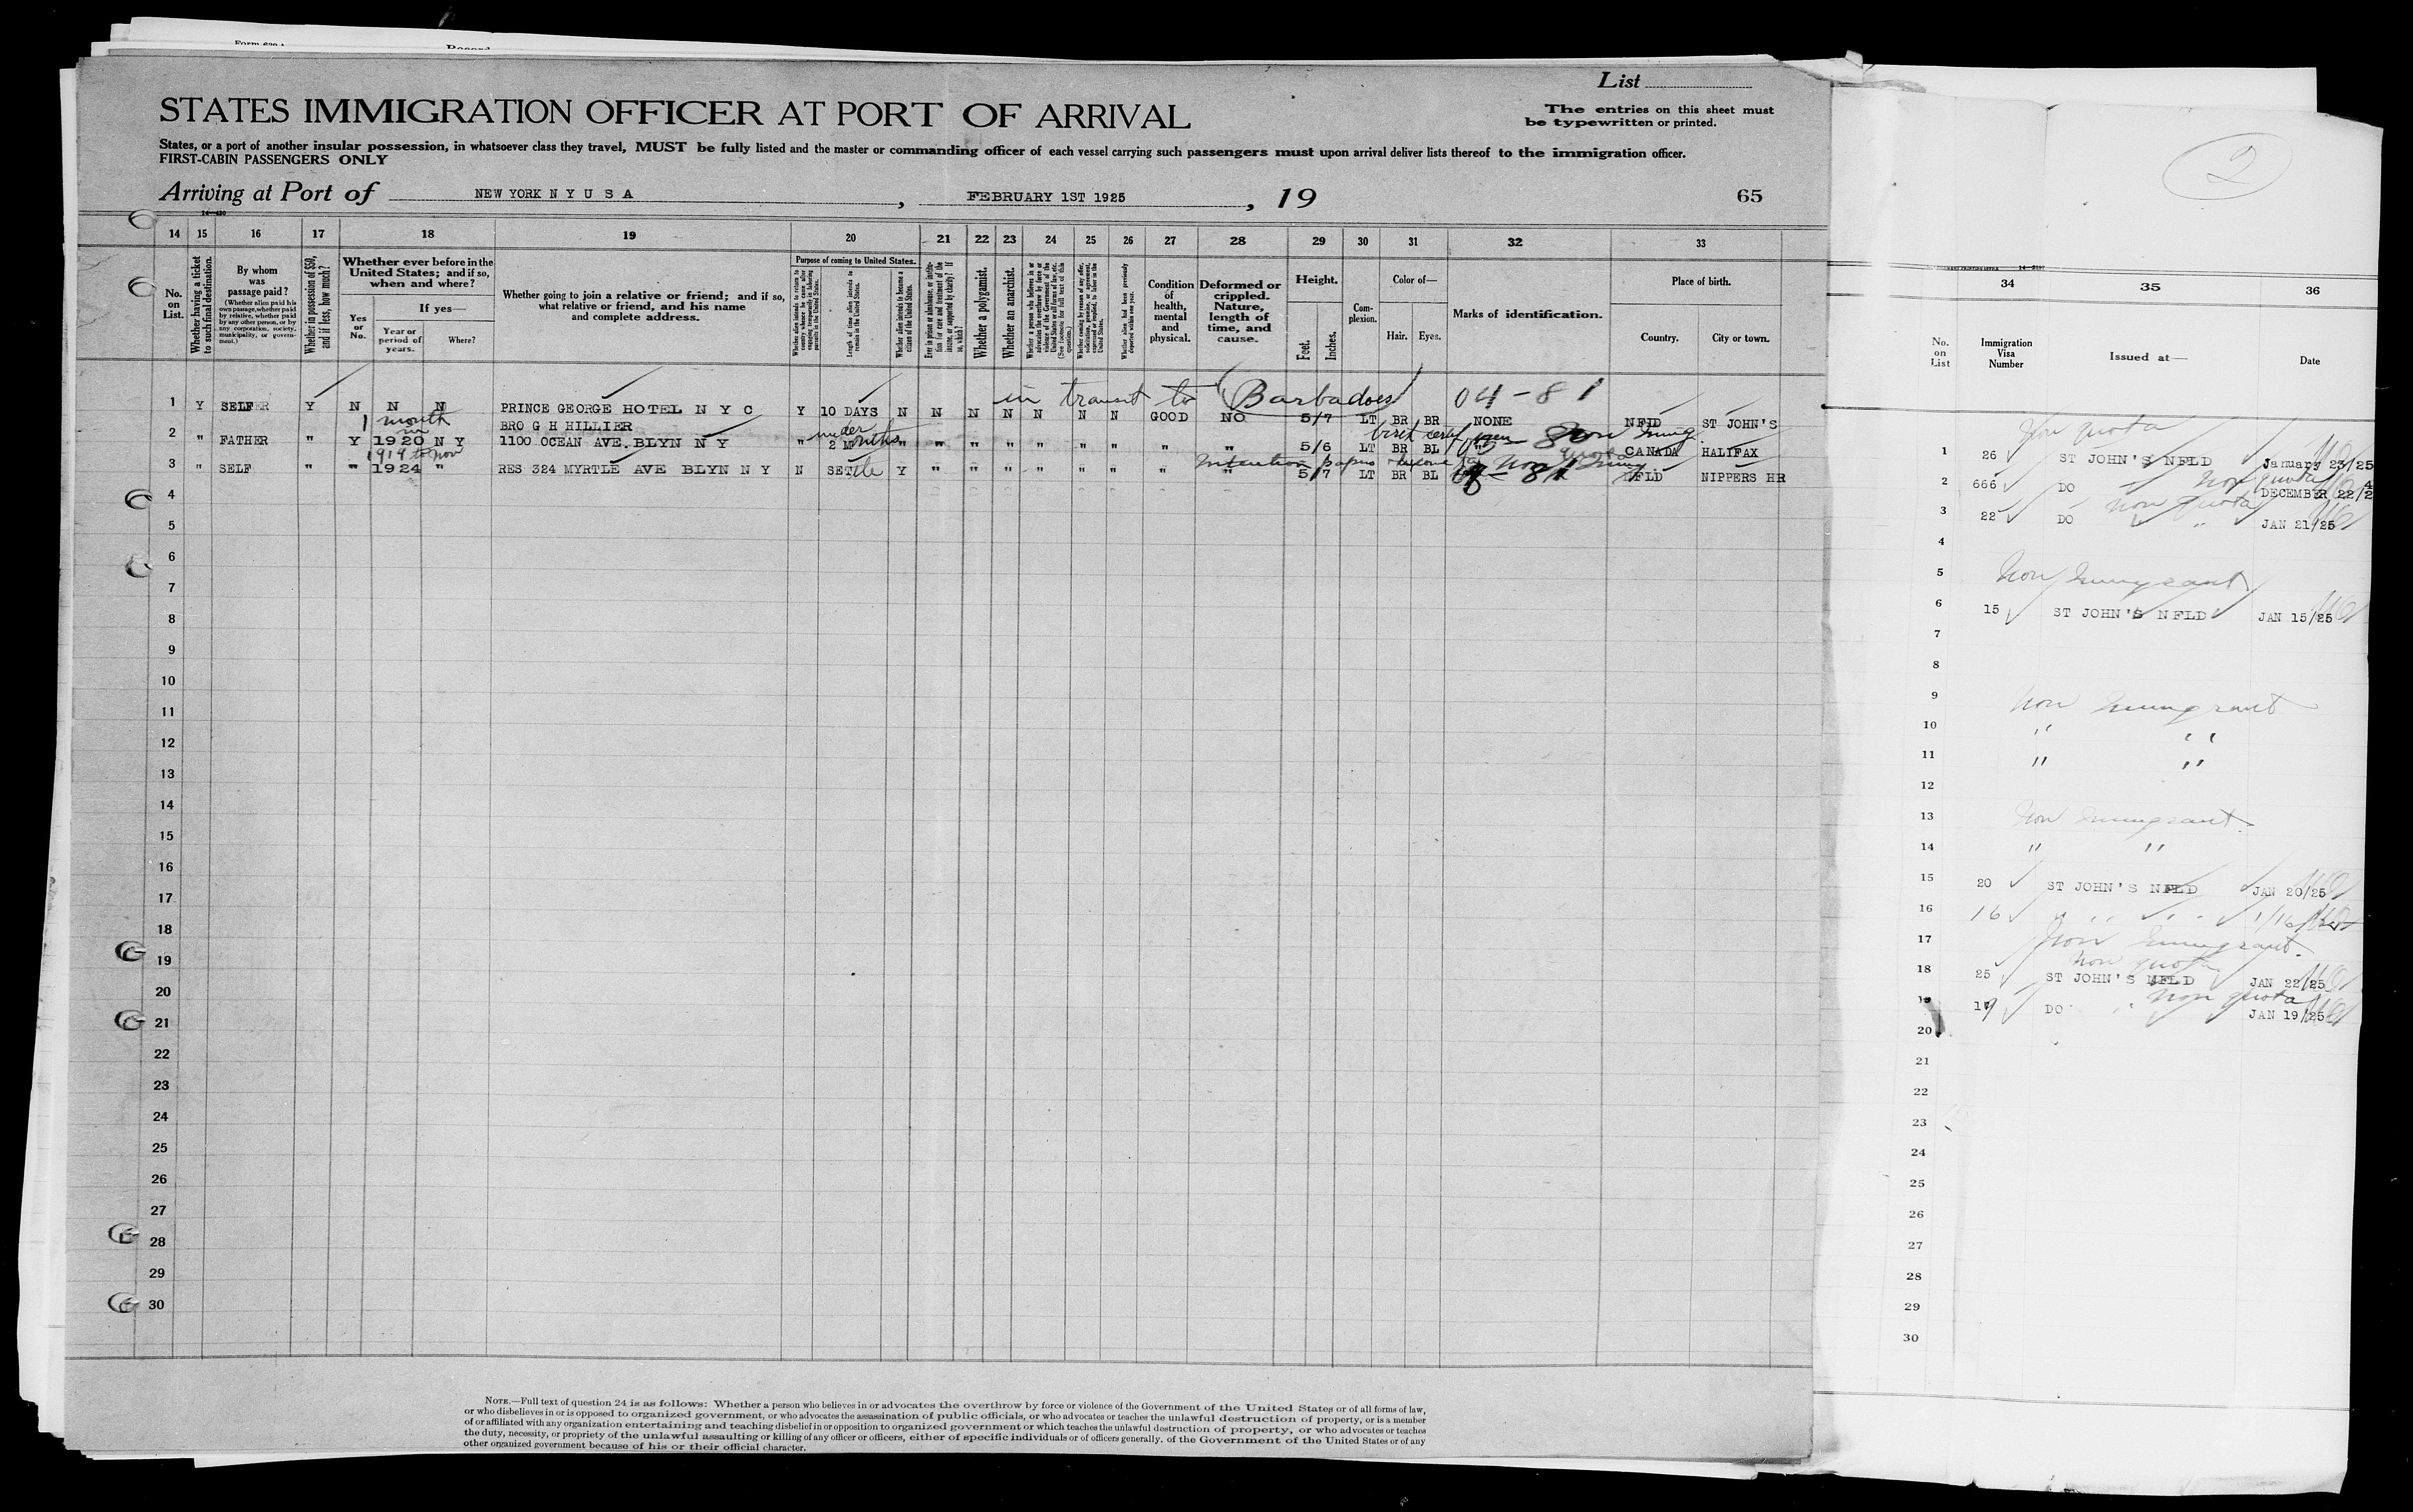 Form 630
Record
List
STATES IMMIGRATION OFFICER AT PORT OF ARRIVAL
The entries on this sheet must
be typewritten or printed.
States, or a port of another insular possession, in whatsoever class they travel, MUST be fully listed and the master or commanding officer of each vessel carrying such passengers must upon arrival deliver lists thereof to the immigration officer.
FIRST-CABIN PASSENGERS ONLY
2
Arriving at Port of NEW YORK N Y U S A , FEBRUARY 1ST 1925 , 19 65
14 15 16 17 18 19 20 21 22 23 24 25 26 27 28 29 30 31 32 33
No. on List.
Whether having a ticket to such final destination.
By whom was passage paid?
(Whether alien paid his own passage, whether paid by relative, whether paid by any other person, or by any corporation, society, municipality, or government.)
Whether in possession of $50, and if less, how much?
Whether ever before in the United States; and if so, when and where?
Yes or No.
If yes—
Year or period of years.
Where?
Whether going to join a relative or friend; and if so, what relative or friend, and his name and complete address.
Purpose of coming to United States.
Length of time alien intends to remain in the United States.
Whether alien intends to become a citizen of the United States.
Whether a polygamist.
Whether an anarchist.
Condition of health, mental and physical.
Deformed or crippled. Nature, length of time, and cause.
Height.
Feet.
Inches.
Complexion.
Color of—
Hair.
Eyes.
Marks of identification.
Place of birth.
Country.
City or town.
in transit to Barbados 04-81
1 Y SELF Y N N N PRINCE GEORGE HOTEL N Y C Y 10 DAYS N N N N N N N GOOD NO 5/7 LT BR BR NONE NFLD ST JOHN'S
1 month in
BRO G H HILLIER under
2 " FATHER " Y 1920 N Y 1100 OCEAN AVE. BLYN N Y " 2 Months " " " " " " " " " 5/6 LT BR BL " CANADA HALIFAX
1919 to Nov
3 " SELF " " 1924 " RES 324 MYRTLE AVE BLYN N Y N SETTLE Y " " " " " " " " 5/7 LT BR BL NFLD NIPPERS HR
4
5
6
7
8
9
10
11
12
13
14
15
16
17
18
19
20
21
22
23
24
25
26
27
28
29
30
NOTE.—Full text of question 24 is as follows: Whether a person who believes in or advocates the overthrow by force or violence of the Government of the United States or of all forms of law,
or who disbelieves in or is opposed to organized government, or who advocates the assassination of public officials, or who advocates or teaches the unlawful destruction of property, or is a member
of or affiliated with any organization entertaining and teaching disbelief in or opposition to organized government or which teaches the unlawful destruction of property, or who advocates or teaches
the duty, necessity, or propriety of the unlawful assaulting or killing of any officer or officers, either of specific individuals or of officers generally, of the Government of the United States or of any
other organized government because of his or their official character.
34 35 36
No. on List
Immigration Visa Number
Issued at—
Date
Non quota
1 26 ST JOHN'S NFLD January 23/25
Non quota
2 666 DO DECEMBER 22/24
Non quota
3 22 DO " JAN 21/25
4
5 Non Immigrant
6 15 ST JOHN'S NFLD JAN 15/25
7
8
9 Non Immigrant
10 " "
11 " "
12
13 Non Immigrant
14 " "
15 20 ST JOHN'S NFLD JAN 20/25
16 16 " " " " 1/16/
17 Non Immigrant
Non quota
18 25 ST JOHN'S NFLD JAN 22/25
Non quota
19 17 DO JAN 19/25
20
21
22
23
24
25
26
27
28
29
30